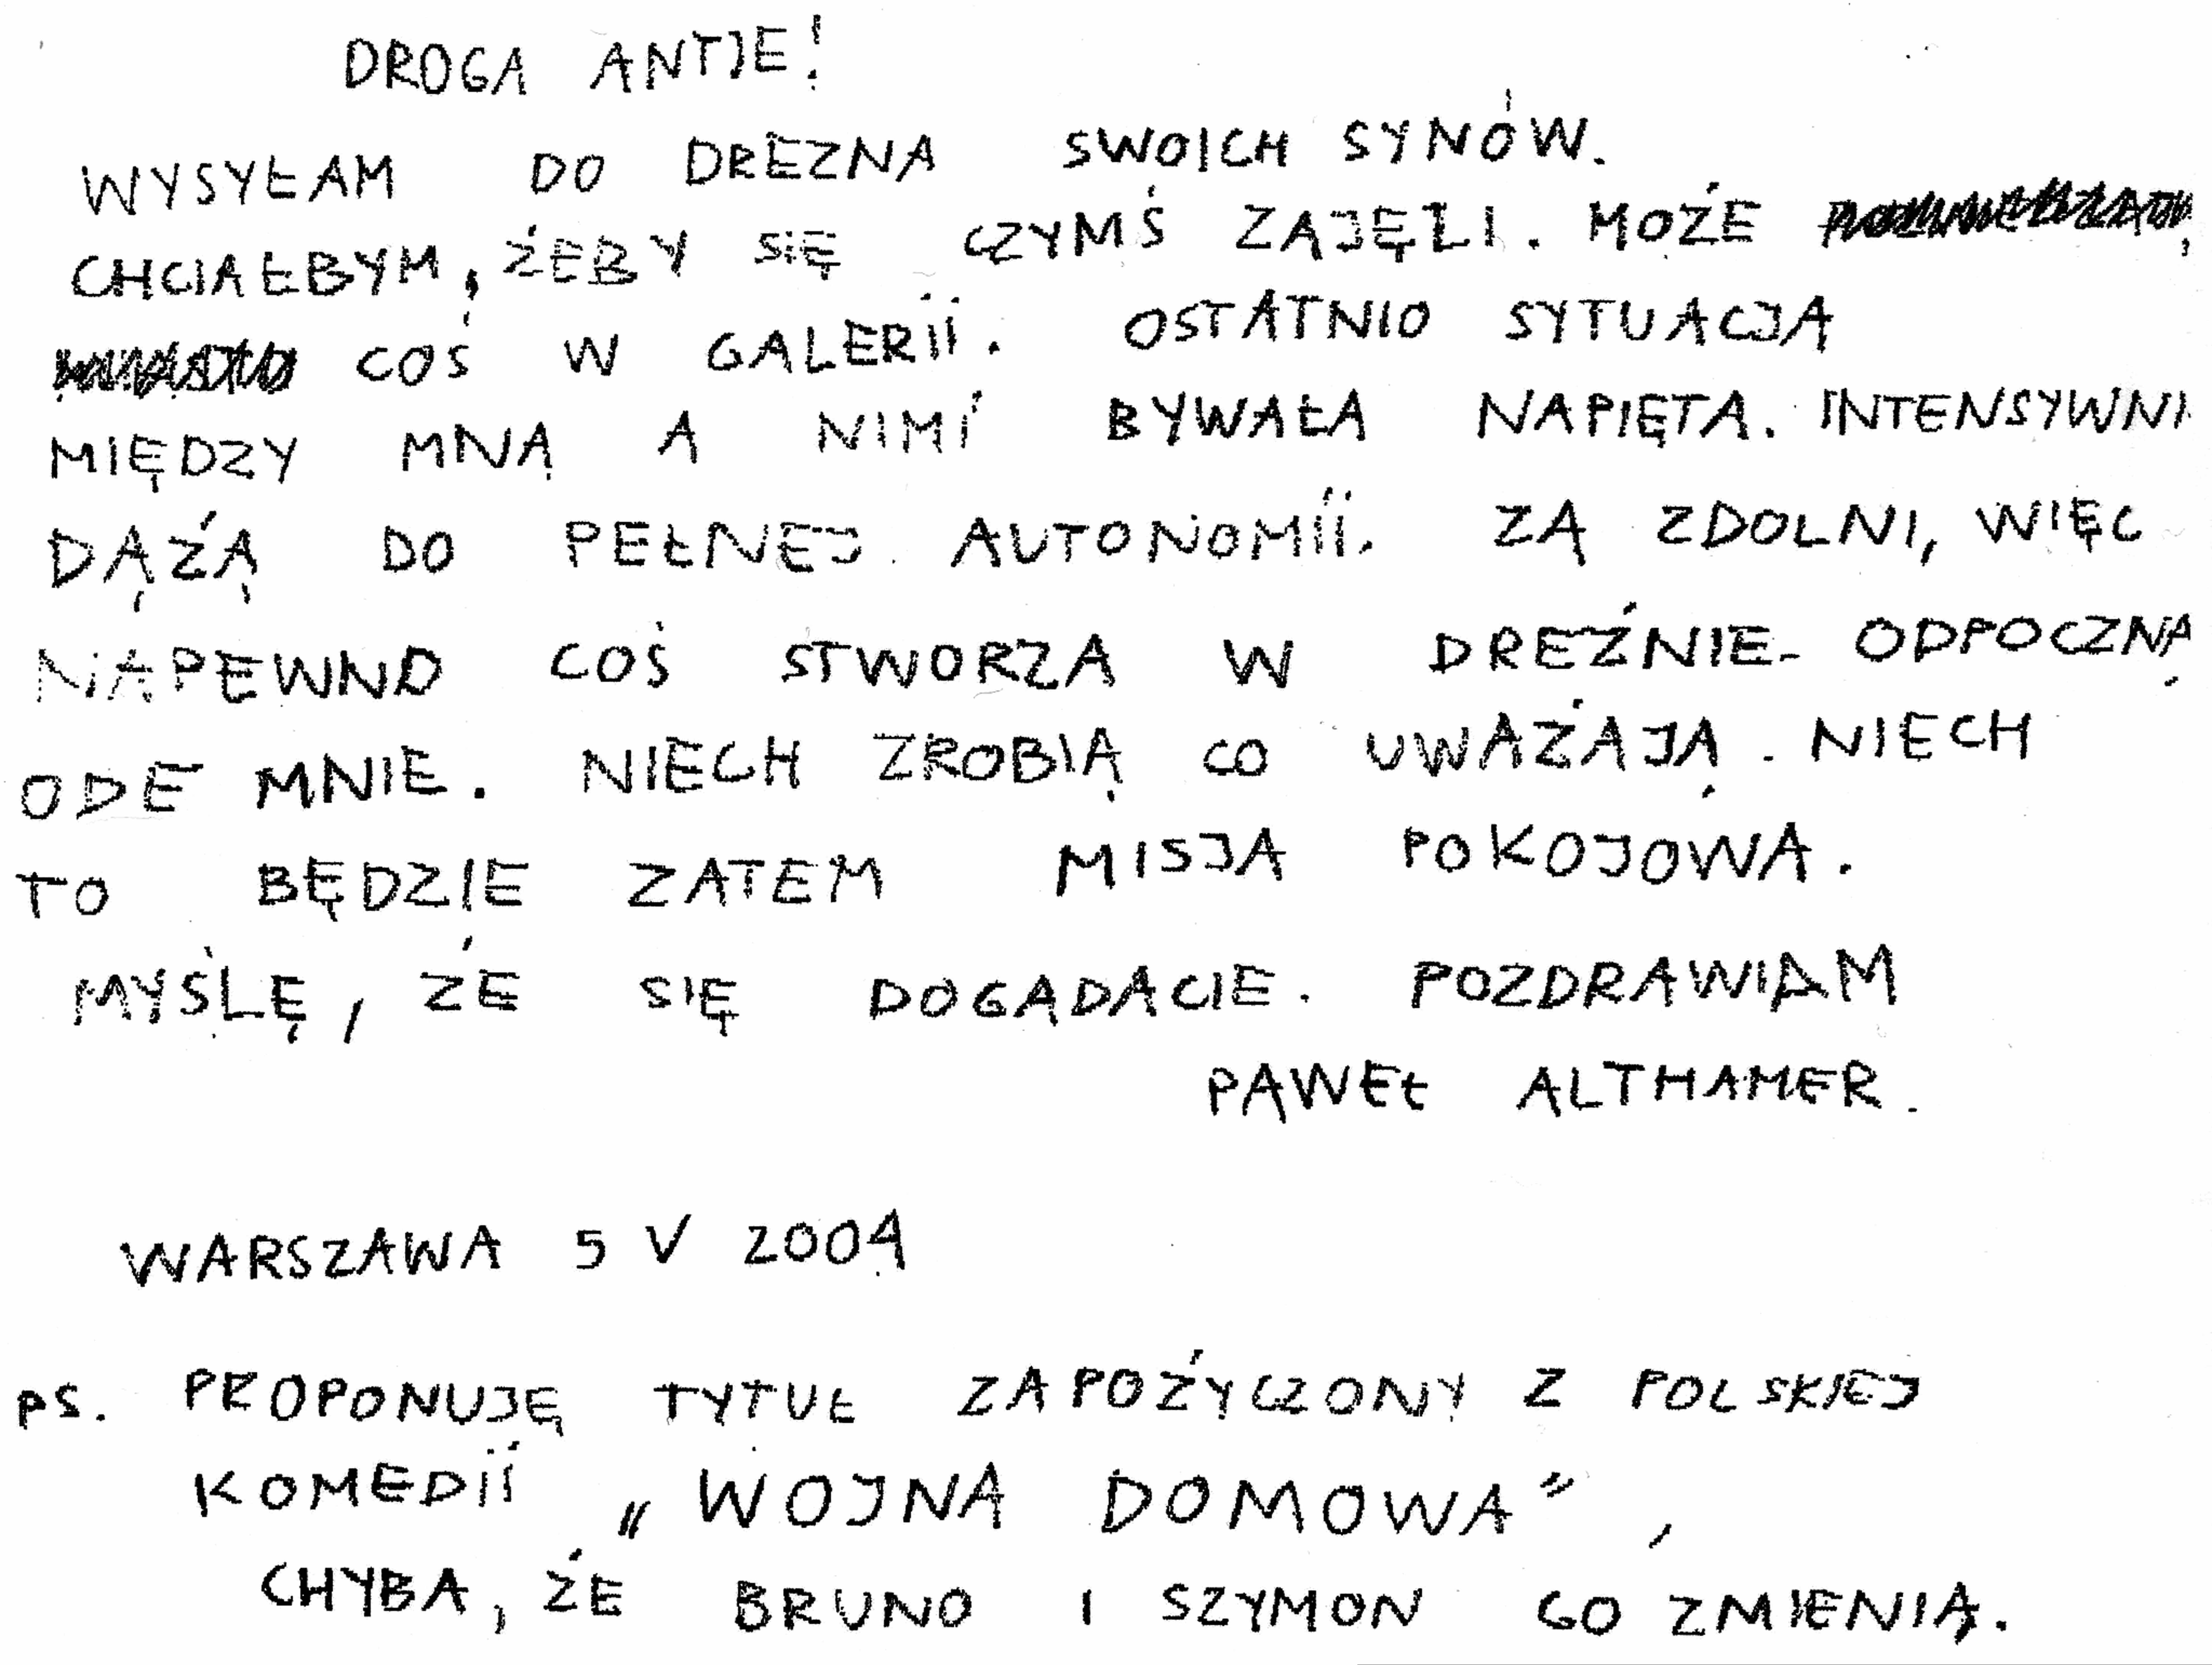 DROGA ANTJE!
WYSYŁAM DO DREZNA SWOICH SYNÓW.
CHCIAŁBYM, ŻEBY SIĘ CZYMŚ ZAJĘLI. MOŻE
COŚ W GALERII. OSTATNIO SYTUACJA
MIĘDZY MNĄ A NIMI BYWAŁA NAPIĘTA. INTENSYWNI
DĄŻĄ DO PEŁNEJ AUTONOMII. ZĄ ZDOLNI, WIĘC
NAPEWNO COŚ STWORZĄ W DREŹNIE. ODPOCZNĄ
ODE MNIE. NIECH ZROBIĄ CO UWAŻAJĄ. NIECH
TO BĘDZIE ZATEM MISJA POKOJOWA.
MYŚLĘ, ŻE SIĘ DOGADACIE. POZDRAWIAM
PAWEŁ ALTHAMER.
WARSZAWA 5 V 2004
PS. PROPONUJĘ TYTUŁ ZAPOŻYCZONY Z POLSKIEJ
KOMEDII „WOJNA DOMOWA”,
CHYBA, ŻE BRUNO I SZYMON GO ZMIENIĄ.